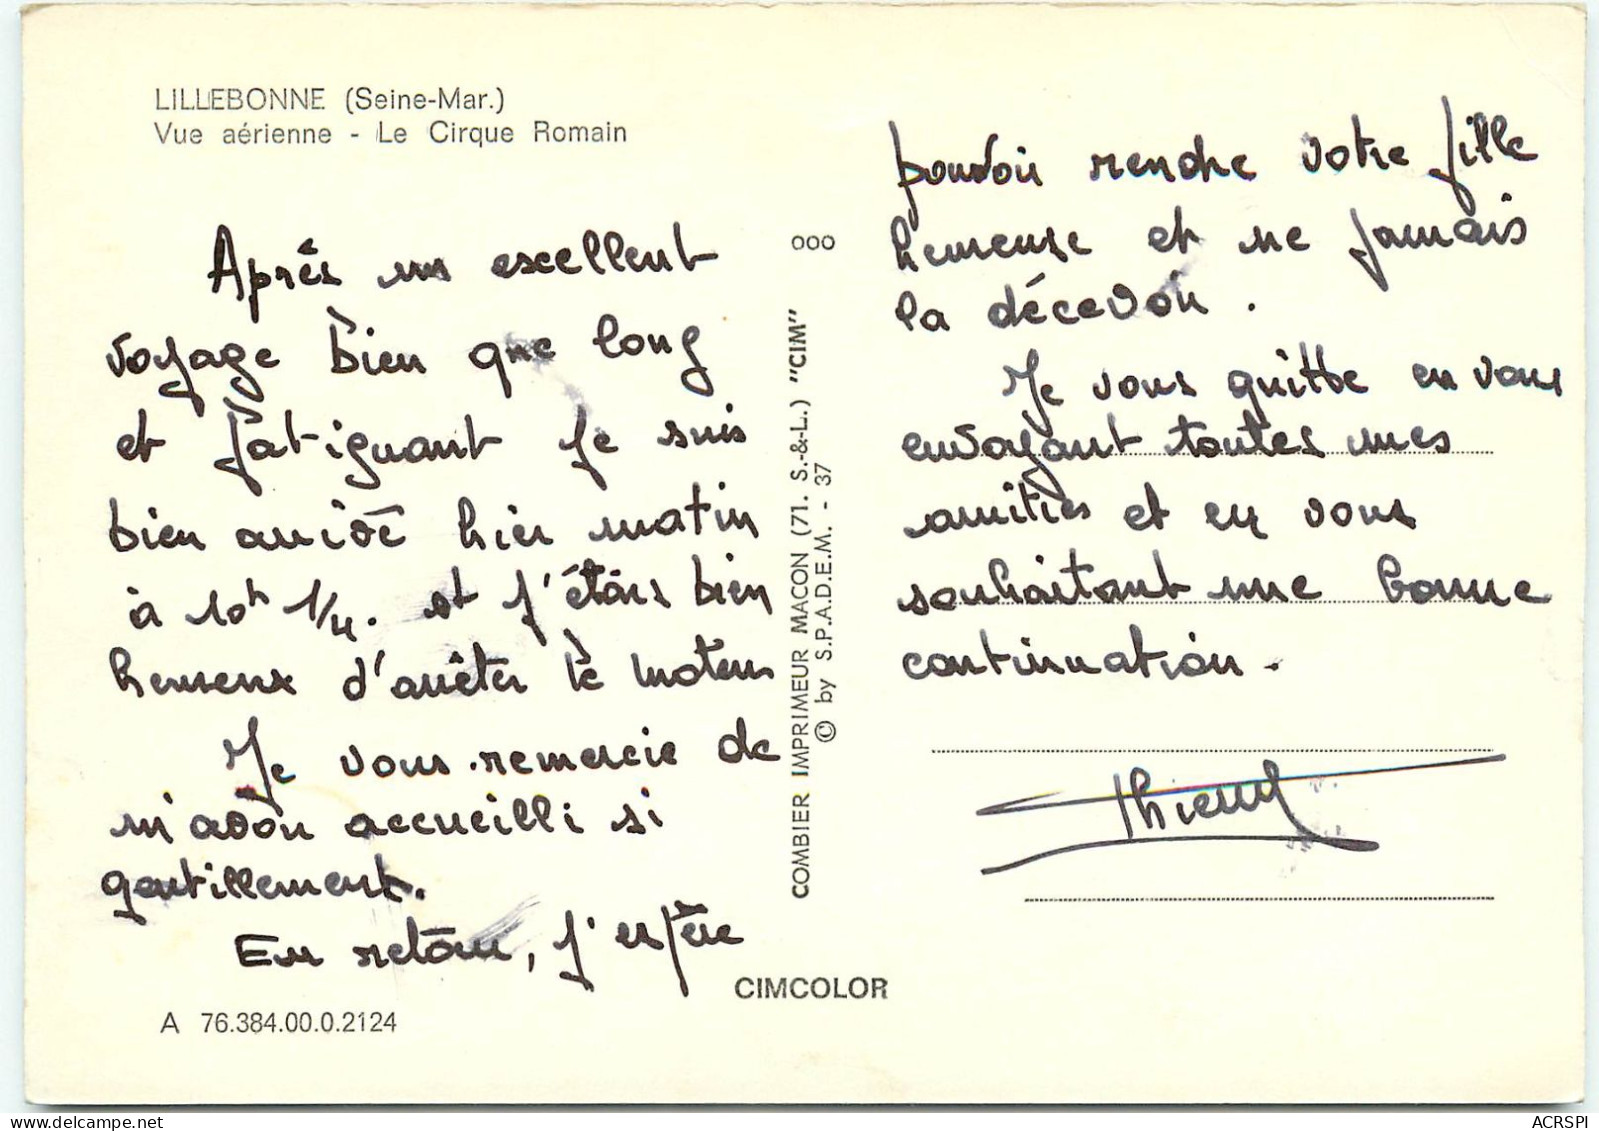 LILLEBONNE (Seine-Mar.)
Vue aérienne - Le Cirque Romain
Après un excellent
voyage bien que long
et fatiguant je suis
bien arrivé hier matin
à 10h 1/4. et j'étais bien
heureux d'arrêter le moteur
Je vous remercie de
m'avoir accueilli si
gentillement.
En retour, j'espère
A 76.384.00.0.2124
000
COMBIER IMPRIMEUR MACON (71. S.-&-L.) "CIM"
© by S.P.A.D.E.M. - 37
CIMCOLOR
pouvoir rendre votre fille
heureuse et ne jamais
la décevoir.
Je vous quitte en vous
envoyant toutes mes
amitiés et en vous
souhaitant une bonne
continuation.
Thierry
ACRSPI